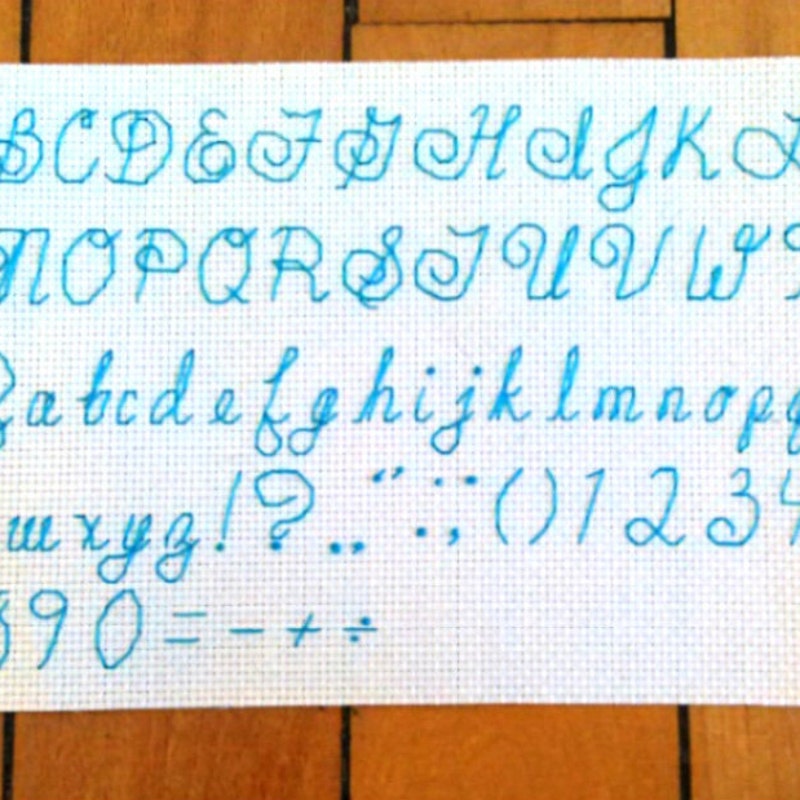 B C D E F G H I J K L
N O P Q R S T U V W
a b c d e f g h i j k l m n o p q
w x y z ! ? . , “ : ; ¨ ( ) 1 2 3 4
8 9 0 = - + ÷